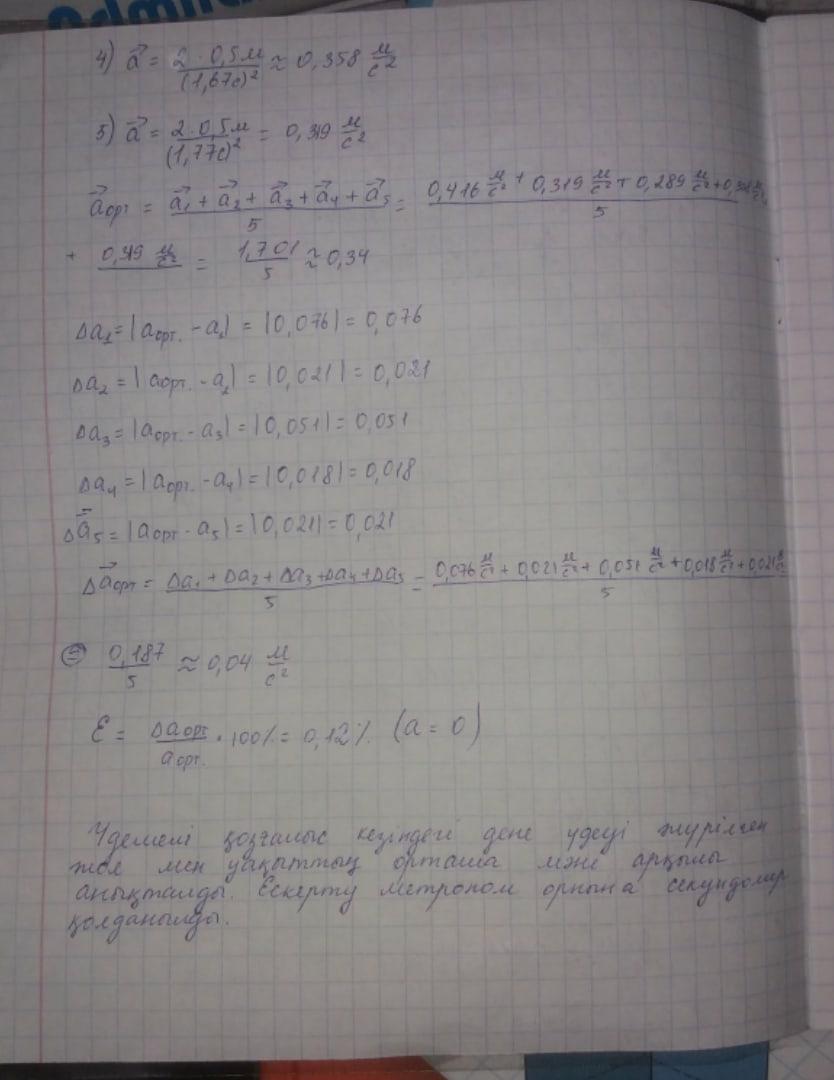 4) a⃗ = 2·0,5м/(1,67с)² ≈ 0,358 м/с²
5) a⃗ = 2·0,5м/(1,77с)² = 0,319 м/с²
a⃗орт = (a⃗₁ + a⃗₂ + a⃗₃ + a⃗₄ + a⃗₅)/5 = (0,416 м/с² + 0,319 м/с² + 0,289 м/с² + 0,358 м/с²)/5
+ 0,319 м/с² = 1,701/5 ≈ 0,34
Δa₁ = |aорт. - a₁| = |0,076| = 0,076
Δa₂ = |aорт. - a₂| = |0,021| = 0,021
Δa₃ = |aорт. - a₃| = |0,051| = 0,051
Δa₄ = |aорт. - a₄| = |0,018| = 0,018
Δa₅ = |aорт - a₅| = |0,021| = 0,021
Δa⃗орт = (Δa₁ + Δa₂ + Δa₃ + Δa₄ + Δa₅)/5 = (0,076 м/с² + 0,021 м/с² + 0,051 м/с² + 0,018 м/с² + 0,021 м/с²)/5
= 0,187/5 ≈ 0,04 м/с²
Ɛ = Δaорт/aорт. · 100% = 0,12% (a = 0)
Үдемелі қозғалыс кезіндегі дене үдеуі жүрілген
жол мен уақыттың орташа мәні арқылы
анықталды. Ескерту метроном орнына секундомер
қолданылды.